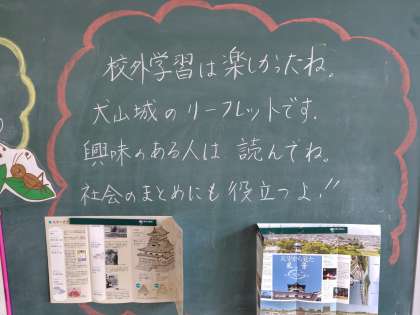 校外学習は楽しかったね。
犬山城のリーフレットです.
興味のある人は読んでね。
社会のまとめにも役立つよ!!